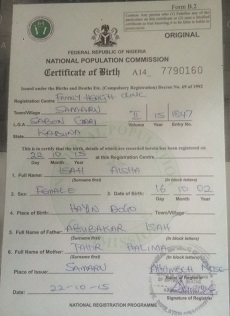 Form B.2
ORIGINAL
FEDERAL REPUBLIC OF NIGERIA
NATIONAL POPULATION COMMISSION
Certificate of Birth A14 7790160
Issued under the Births and Deaths Etc. (Compulsory Registration) Decree No. 69 of 1992
Registration Centre
Town/Village SAMARU
L.G.A. SABON GARI
Volume Year Entry No.
State KADUNA
This is to certify that the birth, details of which are recorded herein has been registered on
22 10 15 at this Registration Centre.
Day Month Year
1. Full Name ISAH AISHA
(Surname first) (In block letters)
2. Sex: FEMALE 3. Date of Birth: 16 10 02
Day Month Year
4. Place of Birth: HAYIN DOGO
Town/Village
5. Full Name of Father: ABUBAKAR ISAH
(Surname first) (In block letters)
6. Full Name of Mother: TAHIR HALIMA
(Surname first) (In block letters)
Place of Issue: SAMARU
Name of Registrar
Date 22-10-15
Signature of Registrar
NATIONAL REGISTRATION PROGRAMME